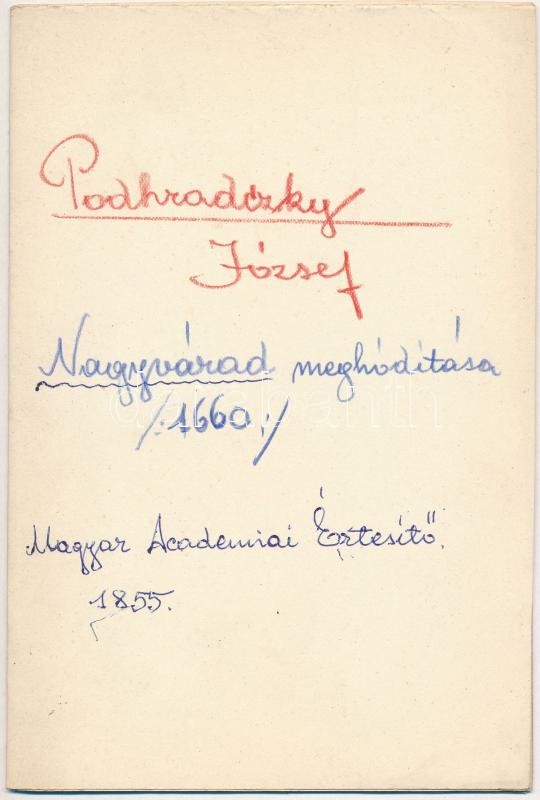 Podhradczky
József
Nagyvárad meghódítása
/:1660:/
darabanth
Magyar Academiai Értesítő.
1855.